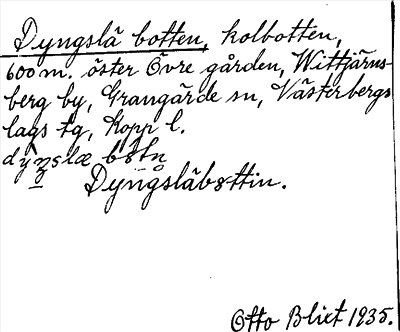 Dyngslä botten, kolbotten,
600 m. öster Övre gården, Wittjärns-
berg by, Grangärde sn, Västerbergs
lags tg, Kopp l.
Dyngsläbottin.
Otto Blixt 1935.